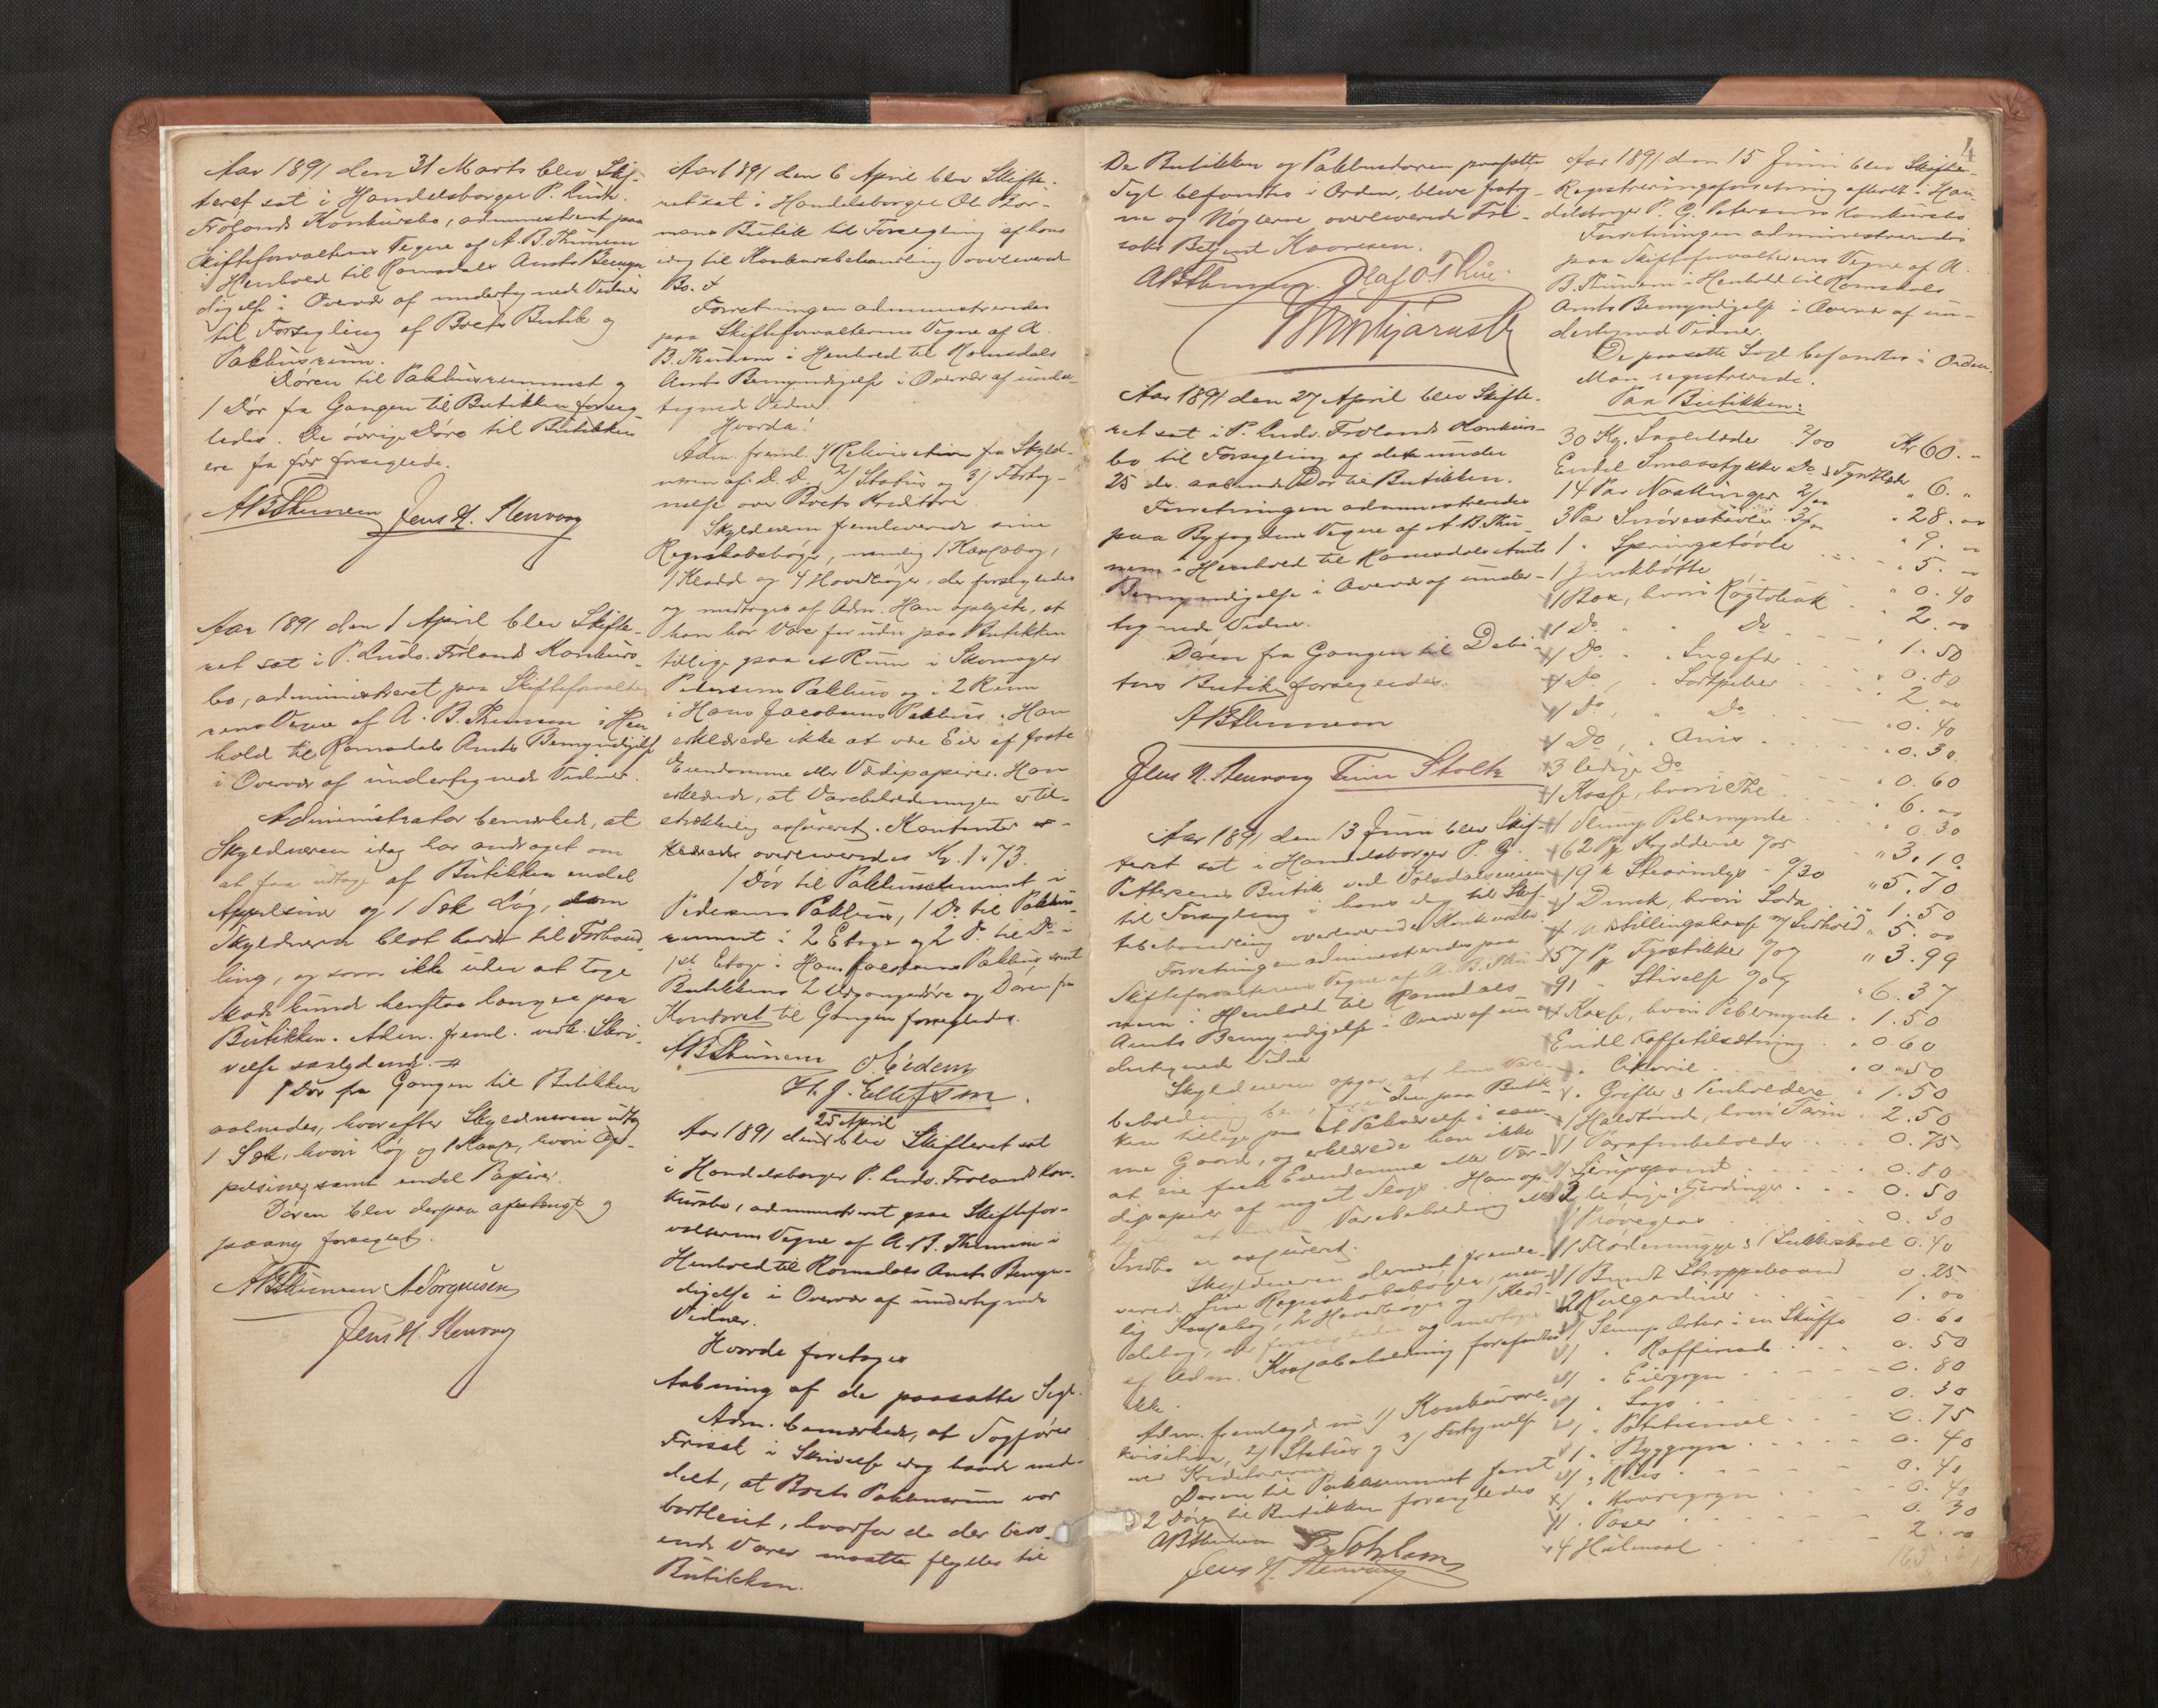 Aar 1891 den 31 Marts blev Skif-
teret sat i Handelsborger P. Ludv.
Frølands Konkursbo, administreret paa
Skifteforvalterens Vegne af A. B. Thunem
i Henhold til Romsdals Amts Bemyn-
digelse i Overvær af undertegnede Vidner
til Forsegling af Boets Butik og
Pakhusrum.
Døren til Pakhusrummet og
1 Dør fra Gangen til Butikken forseg-
ledes. De øvrige Døre til Butikken
ere fra før forseglede.
ABThunem Jens H. Stenvaag
Aar 1891 den 1 April blev Skifte-
ret sat i P. Ludv. Frølands Konkurs-
bo, administreret paa Skifteforvalte-
rens Vegne af A. B. Thunem i Hen-
hold til Romsdals Amts Bemyndigelse
i Overvær af undertegnede Vidner.
Administrator bemærkede, at
Skyldneren idag har andraget om
at faa udtage af Butikken endel
Appelsiner og 1 Sæk Løg, som
Skyldneren blot havde til Forhand-
ling, og som ikke uden at tage
Skade kunde henstaa længere paa
Butikken. Adm. freml. vedk. Skri-
velse saalydende
1 Dør fra Gangen til Butikken
aabnedes, hvorefter Skyldneren udtog
1 Sæk, hvori Løg og 1 Kasse, hvori Ap-
pelsiner, samt endel Papirer.
Døren blev derpaa afstængt og
paany forseglet.
ABThunem A Jørgensen
Jens H. Stenvaag
Aar 1891 den 6 April blev Skifte-
ret sat i Handelsborger Ol
mans Butik til Forsegling af hans
idag til Konkursbehandling overleverede
Bo.
Forretningen administreredes
paa Skifteforvalterens Vegne af A.
B. Thunem i Henhold til Romsdals
Amts Bemyndigelse i Overvær af under-
tegnede Vidner.
Hvorda:
Adm. freml. 1/ Rekvisition fra Skyld-
neren af D. D. 2/ Status og 3/ Forteg-
nelse over Boets Kreditorer.
Skyldneren fremleverede sine
Regnskabsbøger, nemlig 1 Kassabog,
1 Kladd og 4 Hovedbøger, der forsegledes
og medtoges af Adm. Han oplyste, at
han har Varer foruden paa Butikken
tillige paa et Rum i Skomager
Pedersens Pakhus og i 2 Rum
i Hans Jacobsens Pakhus. Han
erklærede ikke at være Eier af faste
Eiendomme eller Værdipapirer. Han
erklærede, at Varebeholdningen er til-
strækkelig assureret. Kontanter
overleveredes Kr. 1.73.
1 Dør til Pakhusrummet i
Pedersens Pakhus, 1 Do til Pakhus-
rummet i 2 Etage og 2 D. til Do i
1ste Etage i Hans Jacobsens Pakhus samt
Butikkens 2 Udgangsdøre og Døren fra
Kontoret til Gangen forsegledes.
ABThunem O. Eidem
H. J. Ellefsen.
25 April
Aar 1891 den blev Skifteret sat
i Handelsborger P. Ludv. Frølands Kon-
kursbo, administreret paa Skiftefor-
valterens Vegne af A. B. Thunem i
Henhold til Romsdals Amts Bemyn-
digelse i Overvær af undertegnede
Vidner.
Hvorda foretoges
Aabning af de paasatte Segl.
Adm. bemærkede, at Sagfører
Frisak i Skrivelse idag havde med-
delt, at Boets Pakhusrum var
bortleiet, hvorfor de der bero-
ende Varer maatte flyttes til
Butikken.
4
De Butikken og Pakhusdøren paasatte
Segl befandtes i Orden, bleve fratag-
ne og Nøglerne overleverede Fri-
saks Betjent Kaaresen.
ABThunem. Olaf O. Thue.
Aar 1891 den 27 April blev Skifte-
ret sat i P. Ludv. Frølands Konkurs-
bo til Forsegling af den under
25 ds. aabnede Dør til Butikken.
Forretningen administreredes
paa Byfogdens Vegne af A. B. Thu-
nem i Henhold til Romsdals Amts
Bemyndigelse i Overvær af under-
tegnede Vidner.
Døren fra Gangen til Debi-
tors Butik forsegledes.
ABThunem
Jens H. Stenvaag Stoltz
Aar 1891 den 13 Juni blev Skif-
teret sat i Handelsborger P. G.
Pettersens Butik ved
til Forsegling i hans idag til Skif-
tebehandling overleverede Konkursbo.
Forretningen administreredes paa
Skifteforvalterens Vegne af A. B. Thu-
nem i Henhold til Romsdals
Amts Bemyndigelse i Overvær af un-
dertegnede Vidner.
Skyldneren opgav at hans Vare-
beholdning foruden paa Butik-
ken tillige paa et Pakværelse i sam-
me Gaard, og erklærede han ikke
at eie faste Eiendomme eller Vær-
dipapirer af noget Slags. Han op-
Varebeholdning
Indbo er assureret.
Skyldneren dernæst fremle-
verede sine Regnskabsbøger, nem-
lig Kassabog, 2 Hovedbøger og 1 Klad-
debog, der forsegledes og medtoges
af Adm. Kassabeholdning forefandtes
ikke.
Adm. fremlagde nu 1/ Konkursre-
kvisition, 2/ Status og 3/ Fortegnelse
over Kreditorerne.
Døren til Pakrummet samt
2 Døre til Butikken forsegledes
ABThunem
Jens H. Stenvaag
Aar 1891 den 15 Juni blev Skifte-
Registreringsforretning afholdt i Han-
delsborger P. G. Petersens Konkursbo
Forretningen administreredes
paa Skifteforvalterens Vegne af A.
B. Thunem i Henhold til Romsdals
Amts Bemyndigelse i Overvær af un-
dertegnede Vidner.
De paasatte Segl befandtes i Orden.
Man registrerede.
Paa Butikken:
30 Kg. Saalelæder 2/00 Kr 60. "
Endel Smaastykker Do & Tyndlæder " 6. "
14 Par Nordlinger 2/00 " 28. 00
3 Par Snørestøvler 3/00 " 9. 00
1 " Springstøvle " 5. 00
1 Zinkbøtte " 0. 40
1 Box, hvori Røgtobak " 2. 00
1 Do " Do 1. 50
1 Do " Ingefær " 0. 80
1 Do, " Sortpeber 2. 00
1 Do, " Do " 0. 40
1 Do, " Anis " 0. 30
3 ledige Do " 0. 60
1 Kasse, hvori The " 6. 00
1 Slump Pebermynte " 0. 30
62 Pk Krydderier 7/05 " 3. 10
19 Stearinlys 9/30 " 5. 70
1 Dunk, hvori Soda " 1. 50
1 Udstillingskasse m/ Indhold " 5. 00
57 Pk Fyrstikker 9/07 " 3. 99
91 " Stivelse 9/07 " 6. 37
1 Kasse, hvori Pebermynte " 1. 50
Endel Kaffetilsætning " 0. 60
" Cikorie " 0. 50
" Grifler & Penholdere " 1. 50
1 Halvtønde, hvori Farin " 2. 50
1 Parafinbeholder 0. 75
1 Sirupspand 0. 80
2 ledige Fjerdinger 0. 50
1 Prøveglas 0. 30
1 Flødemugge & 1 Sukkerskaal 0. 40
1 Bundt Stroppebaand 0. 25
2 Rulgardiner 1. 00
1 Slump Erter i en Skuffe 0. 60
1 " Raffinade 0. 50
1 " Eiergryn 0. 80
1 " Sago 0. 30
1 " Potetesmel 0. 75
1 " Byggryn 0. 40
1 " Ris 0. 40
1 " Havregryn 0. 40
1 " Poser 0. 30
4 Hulmaal 2. 00